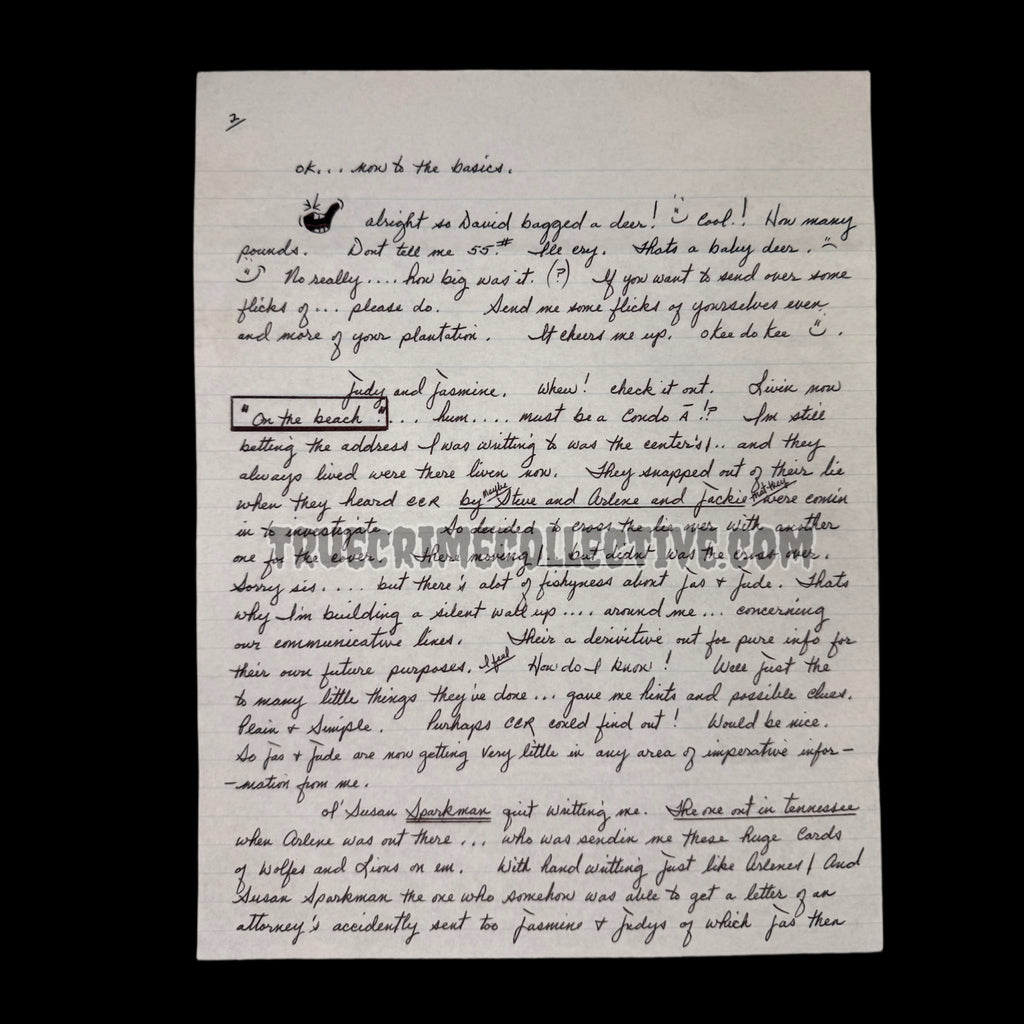 2
ok... now to the basics.
alright so David bagged a deer! Cool! How many
pounds. Dont tell me 55#. I'll cry. Thats a baby deer.
No really.... how big was it. (?) If you want to send over some
flicks of... please do. Send me some flicks of yourselves even
and more of your plantation. It cheers me up. Okee do kee
Judy and Jasmine. Whew! check it out. Livin now
"On the beach"... hum.... must be a Condo A!? I'm still
betting the address I was writting to was the center's!.. and they
always lived were there liven now. They snapped out of their lie
when they heard CCR by maybe Steve and Arlene and Jackie that they were comin
in to investigate. So decided to cross the lie over with another
one for the cover. There moving!.. but didnt was the cross over.
Sorry sis.... but there's alot of fishyness about Jas + Jude. Thats
why I'm building a silent wall up.... around me... concerning
our communicative lines. Their a derivitive out for pure info for
their own future purposes. I feel How do I know! Well just the
to many little things they've done... gave me hints and possible clues.
Plain + Simple. Purhaps CCR could find out! Would be nice.
So Jas + Jude are now getting very little in any area of imperative infor-
-mation from me.
Ol' Susan Sparkman quit writting me. The one out in tennessee
when Arlene was out there... who was sendin me these huge Cards
of Wolfes and Lions on em. With hand writting just like Arlenes! And
Susan Sparkman the one who somehow was able to get a letter of an
attorney's accidently sent too Jasmine + Judys of which Jas then
TRUECRIMECOLLECTIVE.COM